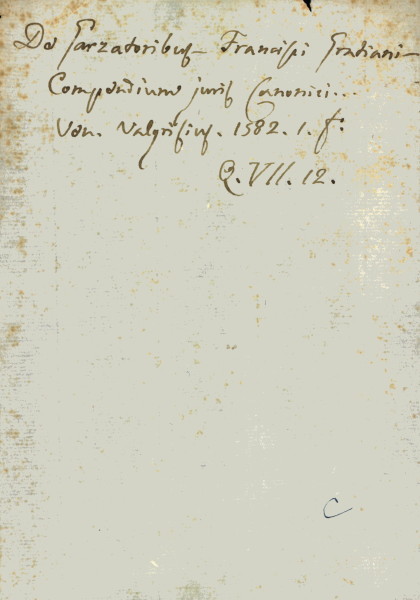 De Garzatoribus Francisci Gratiani
Compendium juris Canonici...
Ven. Valgrisius. 1582. 1. f.
Q. VII. 12.
C